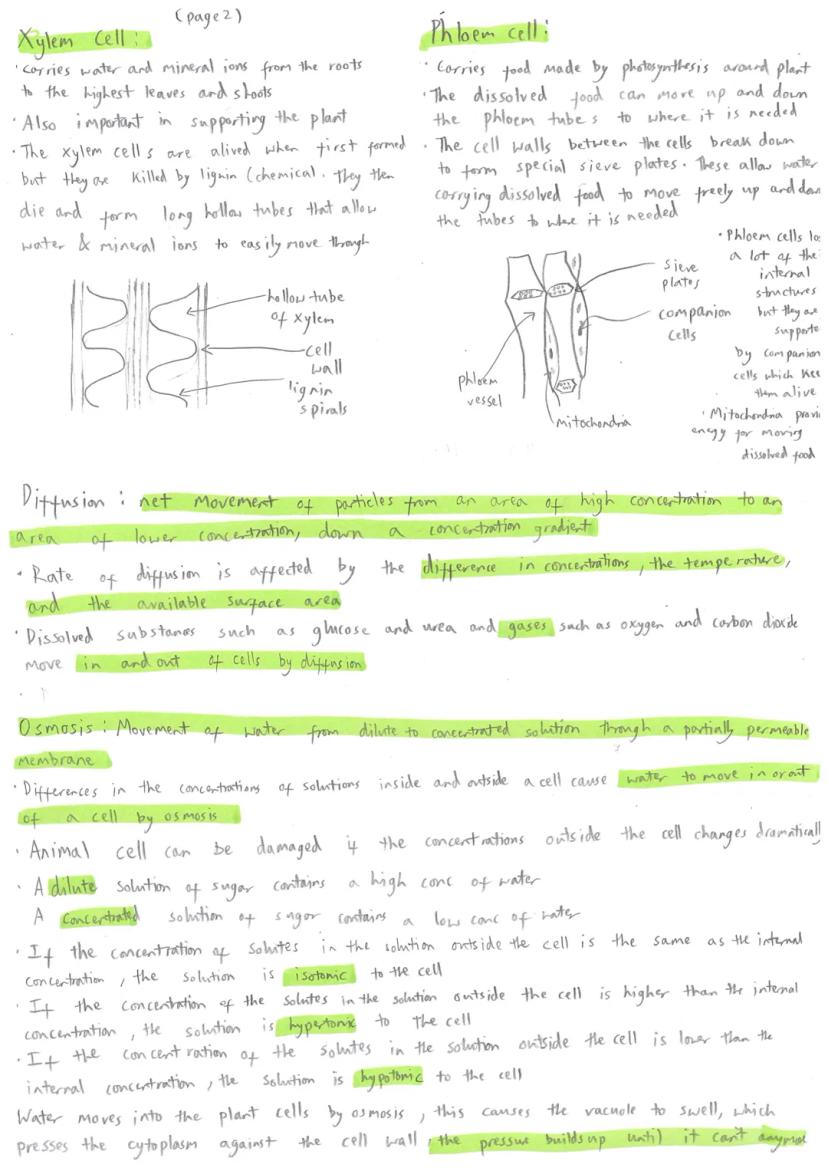 (page 2)
Xylem Cell:
· Carries water and mineral ions from the roots
to the highest leaves and shoots
· Also important in supporting the plant
· The xylem cells are alived when first formed
but they are killed by lignin (chemical. They then
die and form long hollow tubes that allow
water & mineral ions to easily move through
hollow tube
of xylem
cell
wall
lignin
spirals
Phloem cell:
· Carries food made by photosynthesis around plant
· The dissolved food can move up and down
the phloem tubes to where it is needed
· The cell walls between the cells break down
to form special sieve plates. These allow water
carrying dissolved food to move freely up and down
the tubes to where it is needed
sieve
plates
companion
cells
phloem
vessel
mitochondria
· Phloem cells
a lot of the
internal
structures
but they are
by companion
cells which
them alive
· Mitochondria
energy for moving
dissolved food
Diffusion: net movement of particles from an area of high concentration to an
area of lower concentration, down a concentration gradient
· Rate of diffusion is affected by the difference in concentrations, the temperature,
and the available surface area
· Dissolved substances such as glucose and urea and gases such as oxygen and carbon dioxide
move in and out of cells by diffusion
Osmosis: Movement of water from dilute to concentrated solution through a partially permeable
membrane
· Differences in the concentrations of solutions inside and outside a cell cause water to move in or out
of a cell by osmosis
· Animal cell can be damaged if the concentrations outside the cell changes dramatically
· A dilute solution of sugar contains a high conc of water
A concentrated solution of sugar contains a low conc of water
· If the concentration of solutes in the solution outside the cell is the same as the internal
concentration, the solution is isotonic to the cell
· If the concentration of the solutes in the solution outside the cell is higher than the internal
concentration, the solution is hypertonic to the cell
· If the concentration of the solutes in the solution outside the cell is lower than the
internal concentration, the solution is hypotonic to the cell
Water moves into the plant cells by osmosis, this causes the vacuole to swell, which
presses the cytoplasm against the cell wall, the pressure builds up until it can't anymore